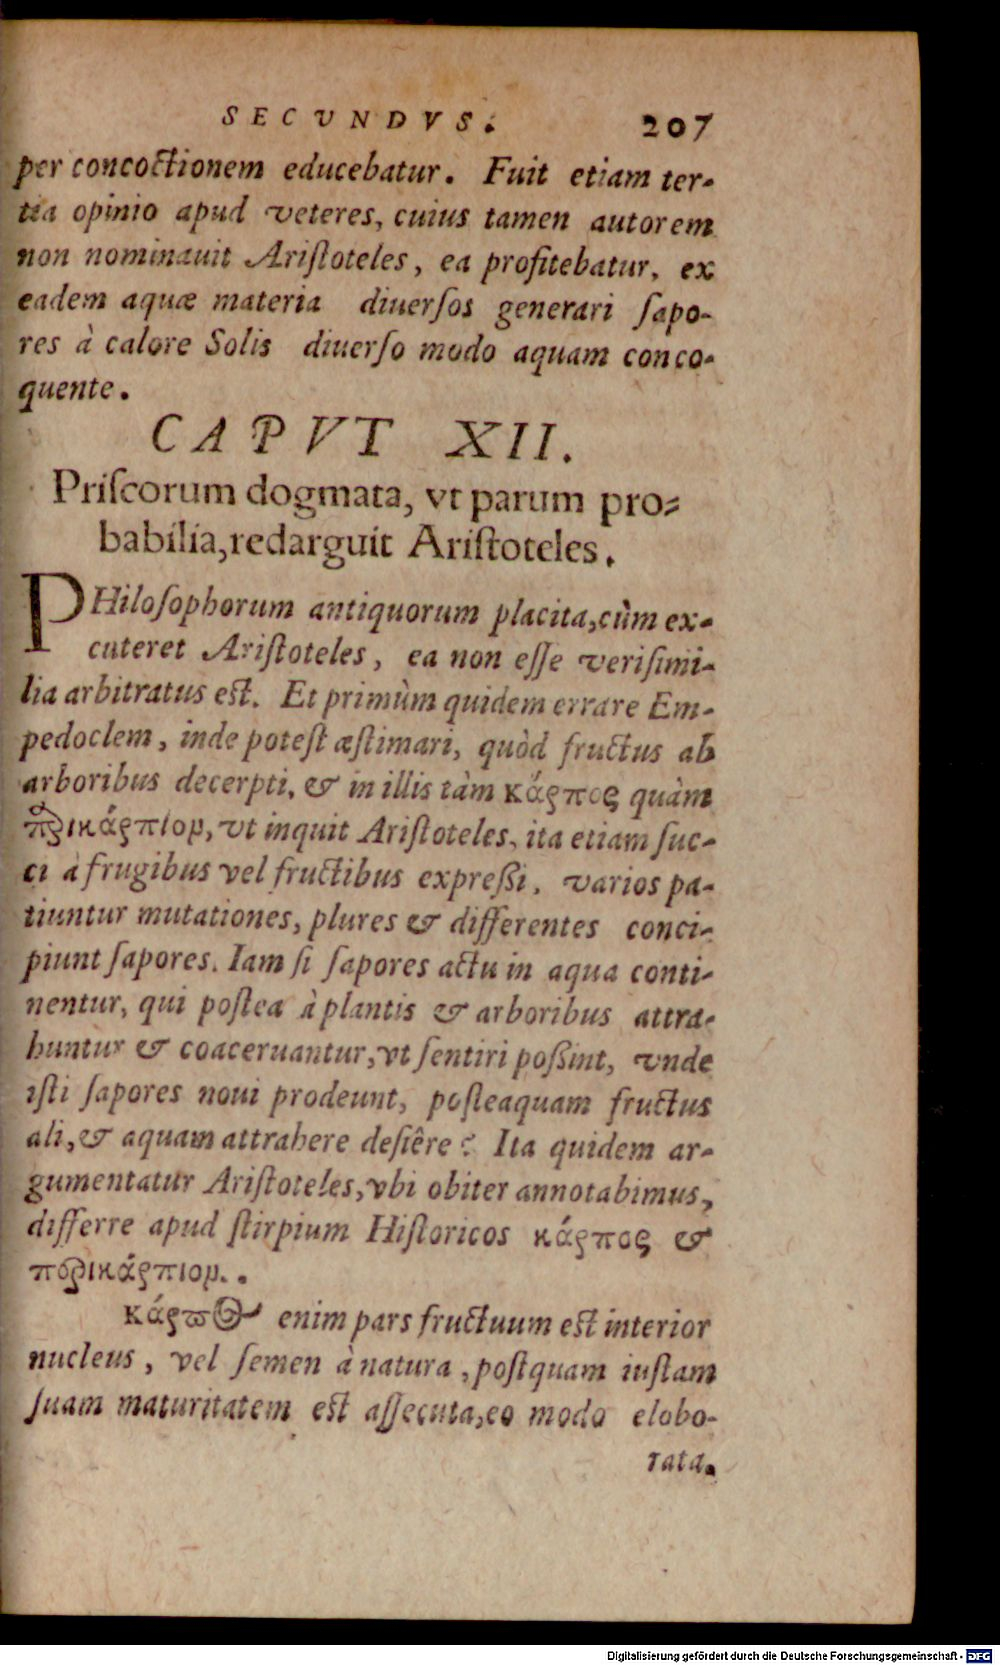 SECVNDVS. 207
per concoctionem educebatur. Fuit etiam ter-
tia opinio apud veteres, cuius tamen autorem
non nominauit Aristoteles, ea profitebatur, ex
eadem aquæ materia diuerſos generari ſapo-
res à calore Solis diuerſo modo aquam conco-
quente.
CAPVT XII.
Priſcorum dogmata, vt parum pro-
babilia, redarguit Ariſtoteles.
PHiloſophorum antiquorum placita, cùm ex-
cuteret Ariſtoteles, ea non eſſe veriſimi-
lia arbitratus eſt. Et primùm quidem errare Em-
pedoclem, inde poteſt æſtimari, quòd fructus ab
arboribus decerpti, & in illis tàm κάρπος quàm
περικάρπιον, vt inquit Ariſtoteles, ita etiam ſuc-
ci à frugibus vel fructibus expreſſi, varios pa-
tiuntur mutationes, plures & differentes conci-
piunt ſapores. Iam ſi ſapores actu in aqua conti-
nentur, qui poſtea à plantis & arboribus attra-
huntur & coaceruantur, vt ſentiri poſſint, vnde
iſti ſapores noui prodeunt, poſteaquam fructus
ali, & aquam attrahere deſiêre? Ita quidem ar-
gumentatur Ariſtoteles, vbi obiter annotabimus,
differre apud ſtirpium Hiſtoricos κάρπος &
περικάρπιον..
κάρπος enim pars fructuum eſt interior
nucleus, vel ſemen à natura, poſtquam iuſtam
ſuam maturitatem eſt aſſecuta, eo modo elabo-
rata.
Digitalisierung gefördert durch die Deutsche Forschungsgemeinschaft - DFG